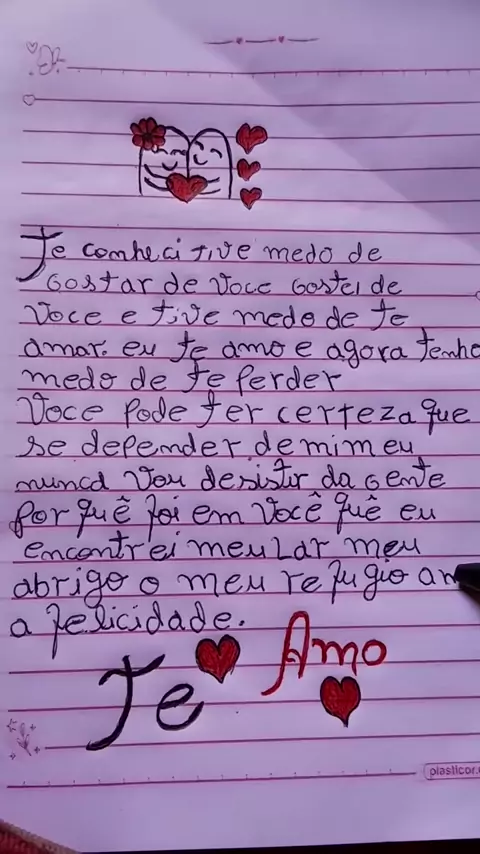 Te conheci tive medo de
Gostar de Voce Gostei de
Voce e tive medo de te
amar. eu te amo e agora tenho
medo de te perder
Voce pode ter certeza que
se depender de mim eu
nunca Vou desistir da gente
Por quê foi em Você quê eu
encontrei meu Lar meu
abrigo o meu refugio
a felicidade.
Te Amo
plasticor